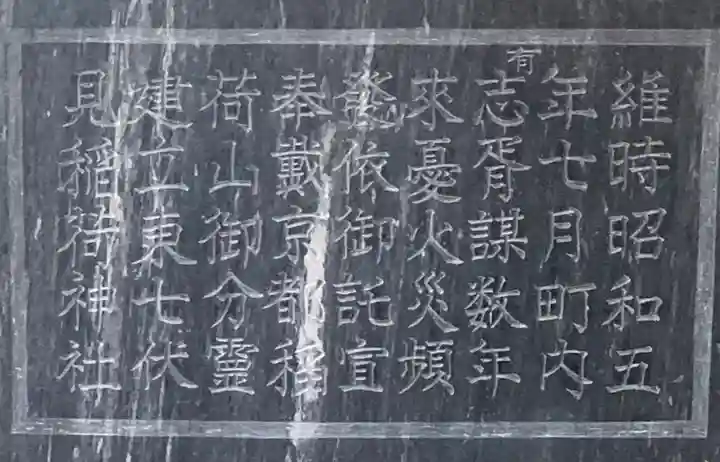 維時昭和五
年七月町内
有志胥謀数年
來憂火災頻
発依御託宣
奉戴京都稲
荷山御分靈
建立東七伏
見稲荷神社